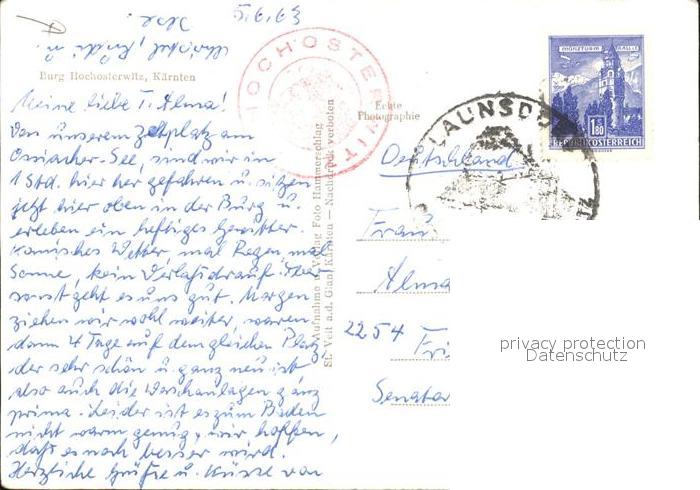 5.6.63
Burg Hochosterwitz, Kärnten
Meine liebe T. Alma!
Von unserem Zeltplatz am
Ossiacher-See, sind wir in
1 Std. hier her gefahren u. sitzen
jetzt hier oben in der Burg u.
erleben ein heftiges Gewitter.
Komisches Wetter, mal Regen, mal
Sonne, kein Verlaß drauf. Aber
sonst geht es uns gut. Morgen
ziehen wir wohl weiter, waren
dann 4 Tage auf dem gleichen Platz,
der sehr schön u. ganz neu ist
also auch die Waschanlagen ganz
prima. Leider ist es zum Baden
nicht warm genug, wir hoffen,
daß es noch besser wird.
Herzliche Grüße u. Küsse von
HOCHOSTERWITZ
Aufnahme u. Verlag Foto Hammerschlag
St. Veit a.d. Glan, Kärnten — Nachdruck verboten
Echte
Photographie
MÜNZTURM HALL I.T.
1.80
REPUBLIK ÖSTERREICH
LAUNSDO
Deutschland
Frau
Alma
2254 Fri
Senator
privacy protection
Datenschutz